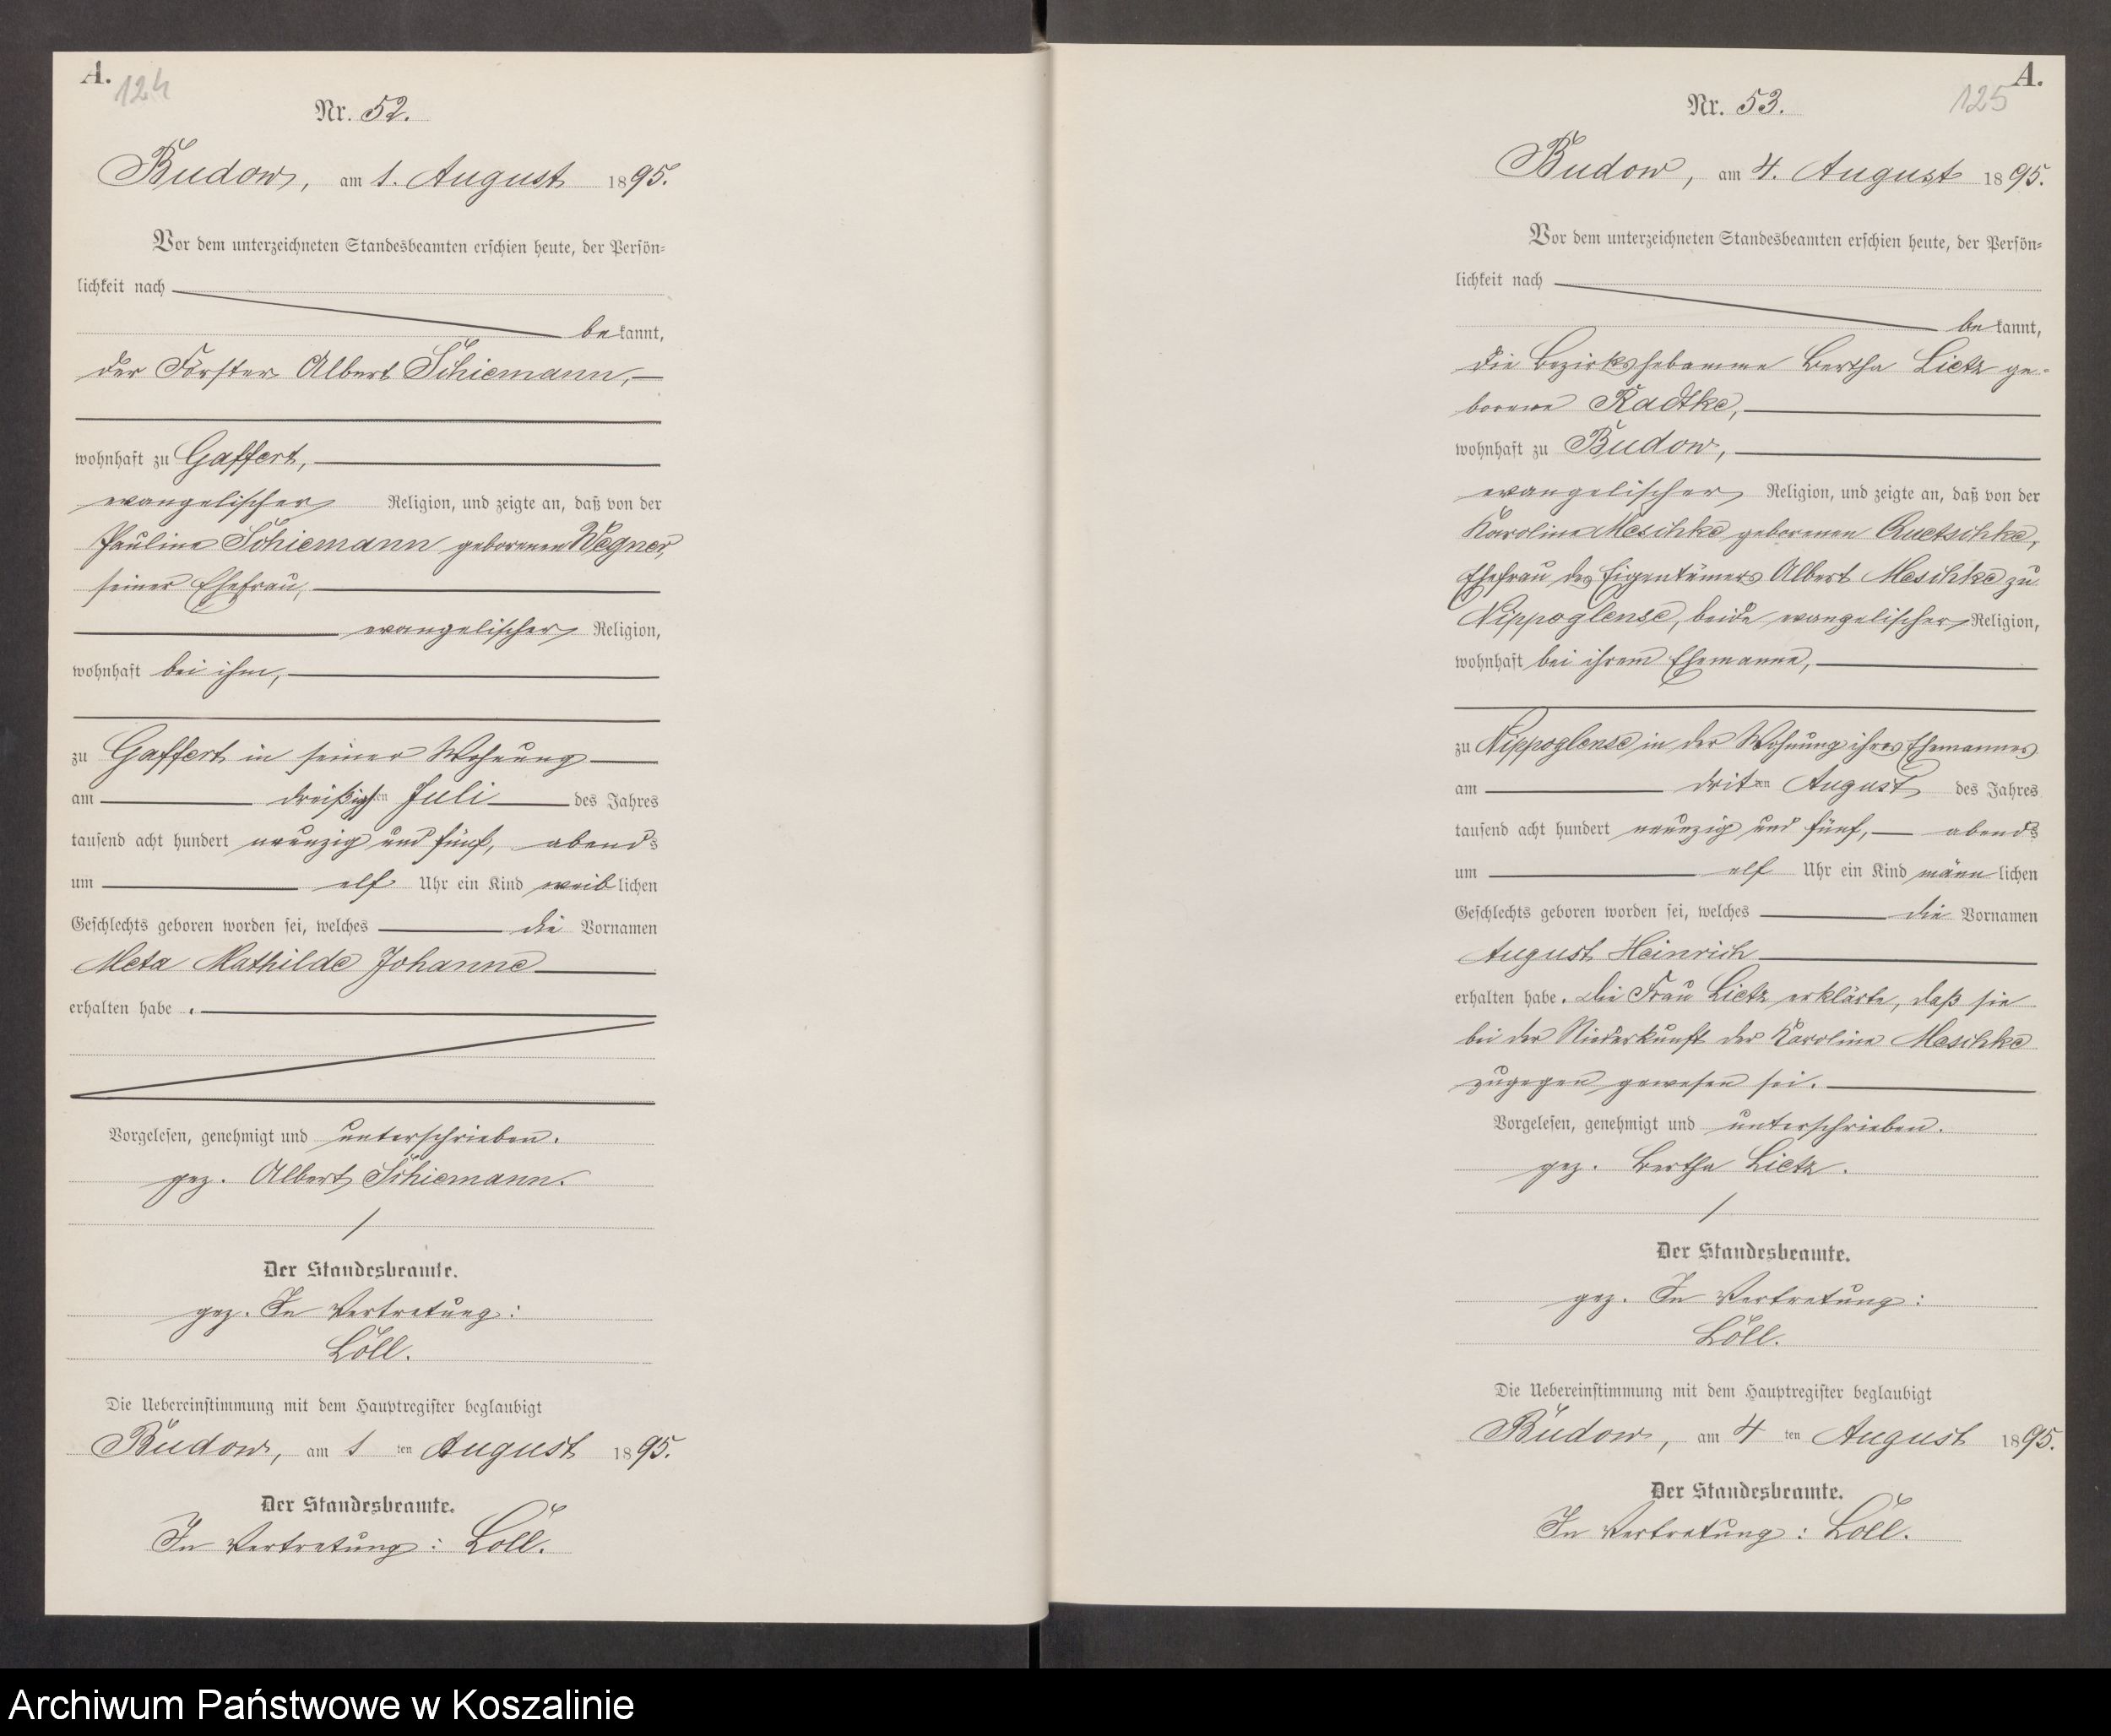 A.
124
Nr. 52.
Budow, am 1. August 1895.
Vor dem unterzeichneten Standesbeamten erschien heute, der Persön-
lichkeit nach
bekannt,
der Förster Albert Schiemann,
wohnhaft zu Gaffert,
evangelischer Religion, und zeigte an, daß von der
Pauline Schiemann geborenen Wegner,
seiner Ehefrau,
evangelischer Religion,
wohnhaft bei ihm,
zu Gaffert in seiner Wohnung
am dreißigsten Juli des Jahres
tausend acht hundert neunzig und fünf, abends
um elf Uhr ein Kind weiblichen
Geschlechts geboren worden sei, welches die Vornamen
Meta Mathilde Johanne
erhalten habe.
Vorgelesen, genehmigt und unterschrieben.
gez. Albert Schiemann.
Der Standesbeamte.
gez. In Vertretung:
Löll.
Die Uebereinstimmung mit dem Hauptregister beglaubigt
Budow, am 1 ten August 1895.
Der Standesbeamte.
In Vertretung: Löll.
A.
125
Nr. 53.
Budow, am 4. August 1895.
Vor dem unterzeichneten Standesbeamten erschien heute, der Persön-
lichkeit nach
bekannt,
die Bezirkshebamme Bertha Lietz ge-
borene Radtke,
wohnhaft zu Budow,
evangelischer Religion, und zeigte an, daß von der
Karoline Meschke geborenen Quetschke,
Ehefrau des Eigentümers Albert Meschke zu
Nippoglense, beide evangelischer Religion,
wohnhaft bei ihrem Ehemanne,
zu Nippoglense in der Wohnung ihres Ehemannes
am dritten August des Jahres
tausend acht hundert neunzig und fünf, abends
um elf Uhr ein Kind männlichen
Geschlechts geboren worden sei, welches die Vornamen
August Heinrich
erhalten habe. Die Frau Lietz erklärte, daß sie
bei der Niederkunft der Karoline Meschke
zugegen gewesen sei.
Vorgelesen, genehmigt und unterschrieben.
gez. Bertha Lietz.
Der Standesbeamte.
gez. In Vertretung:
Löll.
Die Uebereinstimmung mit dem Hauptregister beglaubigt
Budow, am 4 ten August 1895.
Der Standesbeamte.
In Vertretung: Löll.
Archiwum Państwowe w Koszalinie